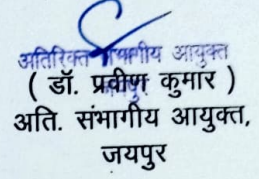 अतिरिक्त संभागीय आयुक्त
( डॉ. प्रवीण कुमार )
अति. संभागीय आयुक्त,
जयपुर